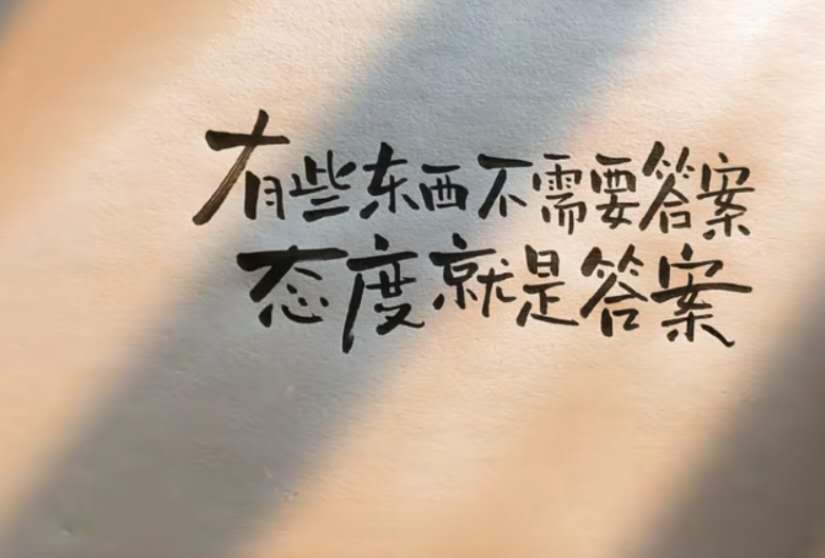 有些东西不需要答案
态度就是答案